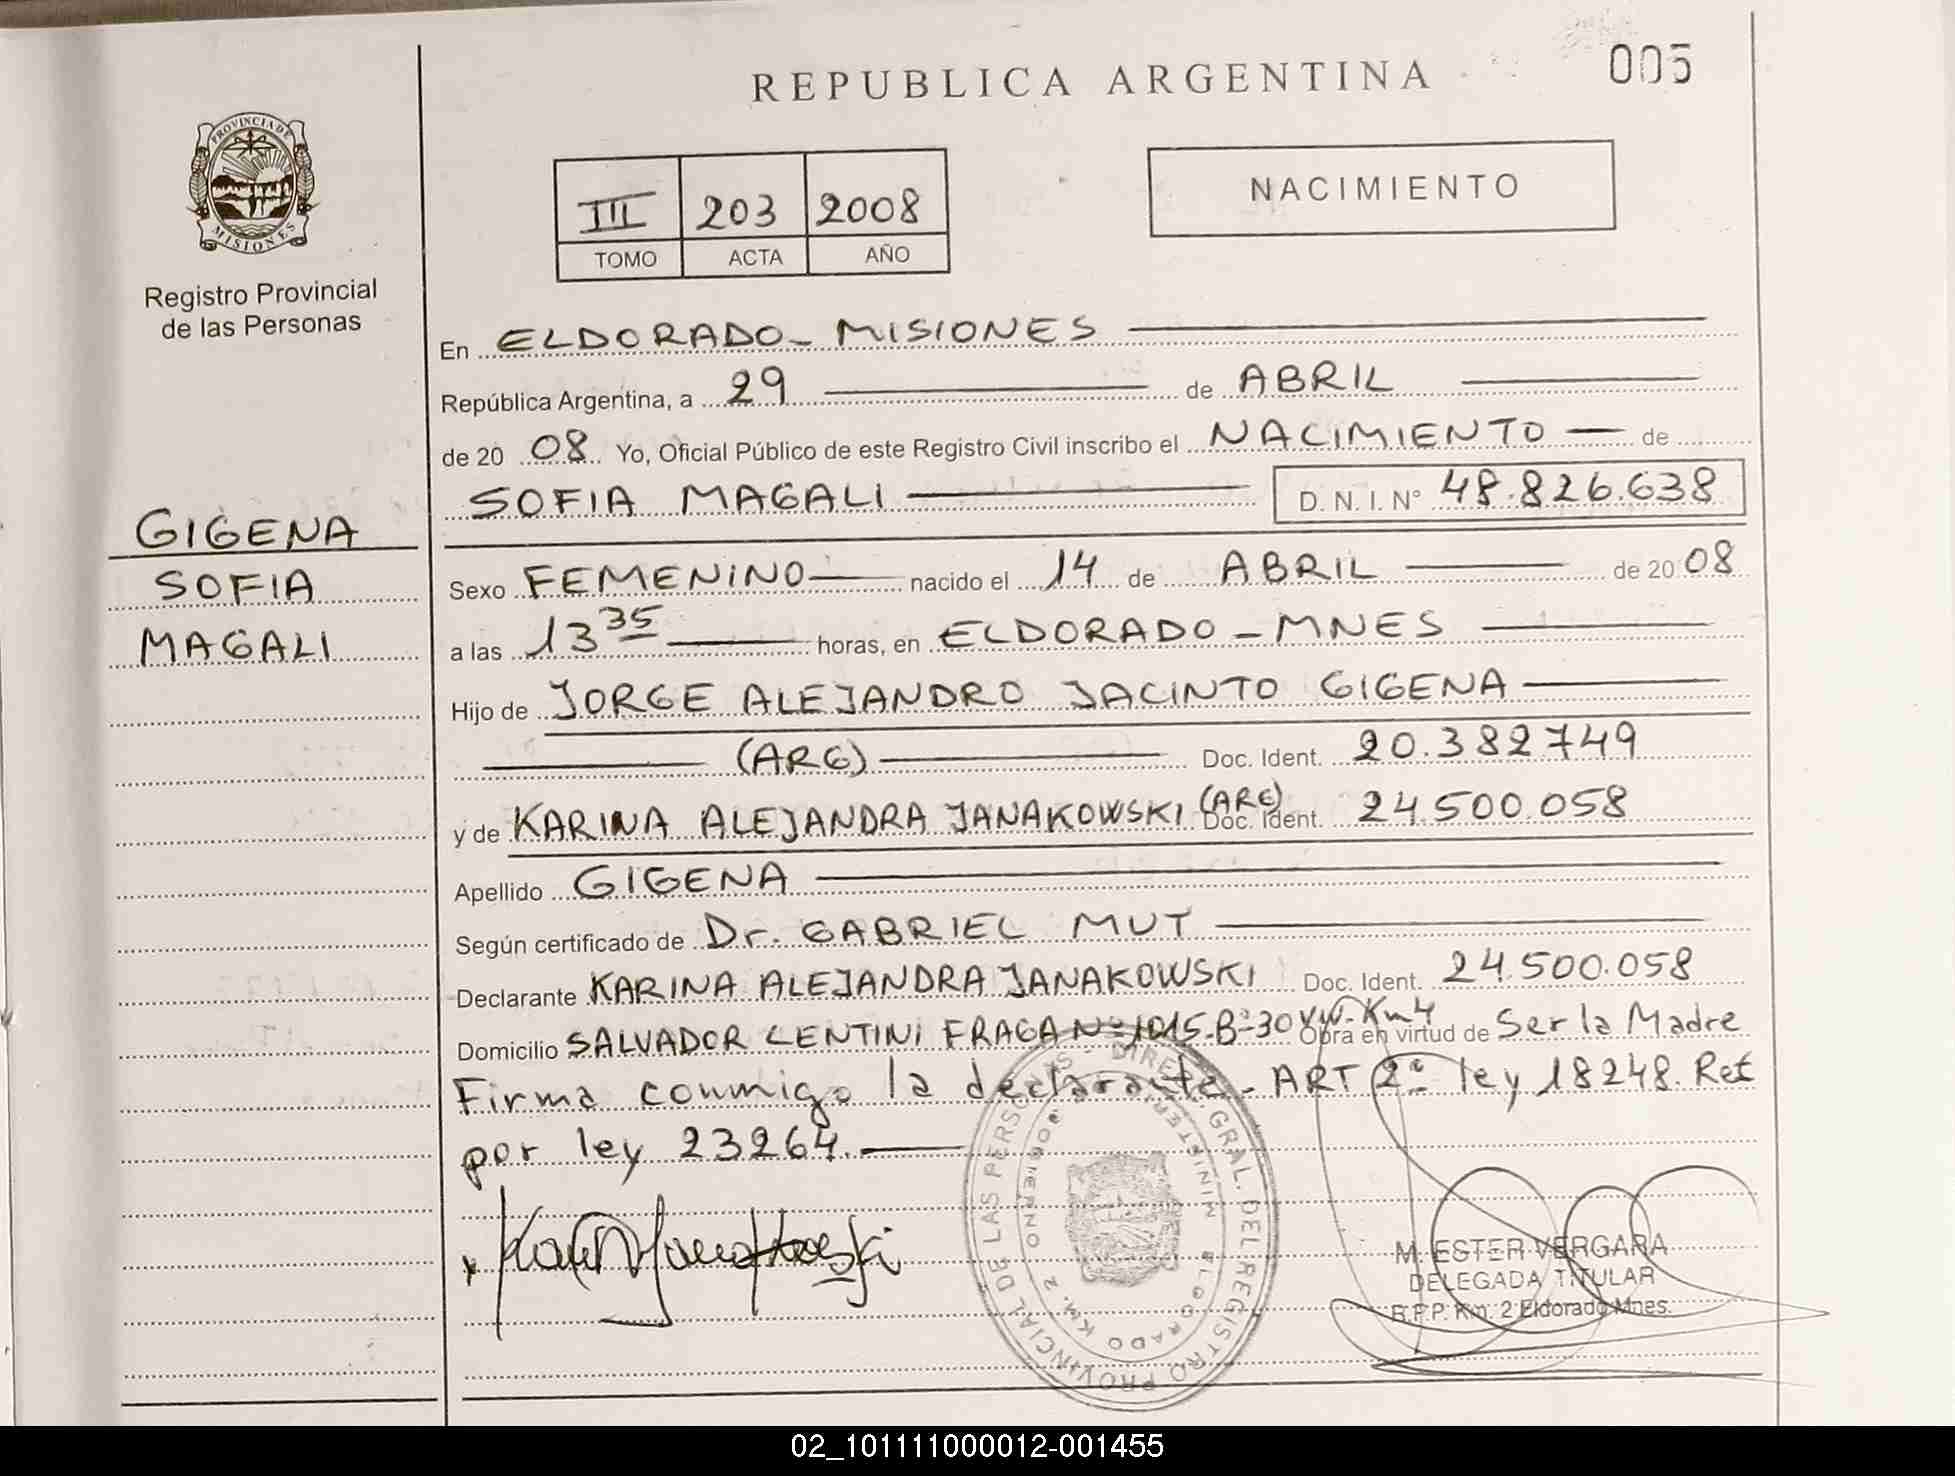 REPUBLICA ARGENTINA
005
PROVINCIA DE
MISIONES
Registro Provincial
de las Personas
III 203 2008
TOMO ACTA AÑO
NACIMIENTO
En ELDORADO - MISIONES
República Argentina, a 29 de ABRIL
de 20 08 Yo, Oficial Público de este Registro Civil inscribo el NACIMIENTO de
SOFIA MAGALI D. N. I. N° 48.826.638
GIGENA
SOFIA
MAGALI
Sexo FEMENINO nacido el 14 de ABRIL de 20 08
a las 13 35 horas, en ELDORADO - MNES
Hijo de JORGE ALEJANDRO JACINTO GIGENA
(ARG) Doc. Ident. 20.382749
y de KARINA ALEJANDRA JANAKOWSKI (ARG) Doc. Ident. 24.500.058
Apellido GIGENA
Según certificado de Dr. GABRIEL MUT
Declarante KARINA ALEJANDRA JANAKOWSKI Doc. Ident. 24.500.058
Domicilio SALVADOR LENTINI FRAGA Nº 1015-Bº-30 Viv. Km 4 Obra en virtud de Ser la Madre
Firma conmigo la declarante - ART 2º ley 18248. Ret
por ley 23264.
REGISTRO PROVINCIAL DE LAS PERSONAS - DIREC. GRAL. DEL
MINISTERIO GOBIERNO
ELDORADO KM. 2
M. ESTER VERGARA
DELEGADA TITULAR
R.P.P. Km. 2 Eldorado Mnes.
02_101111000012-001455